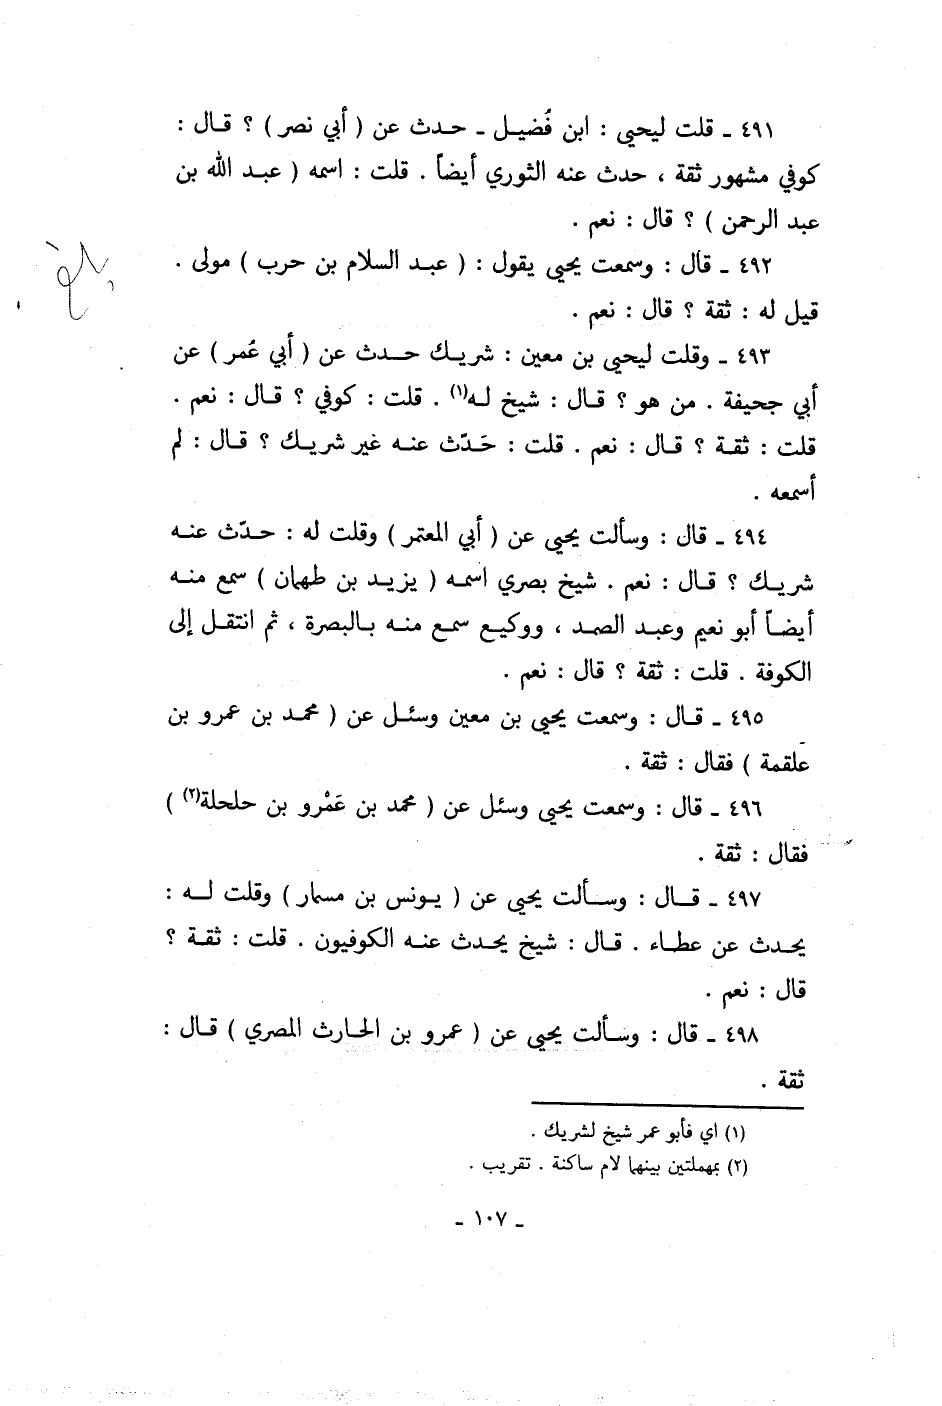 ٤٩١ ـ قلت ليحيى : ابن فُضيـل ـ حـدث عن ( أبي نصر ) ؟ قـال :
كوفي مشهور ثقة ، حدث عنه الثوري أيضاً . قلت : اسمه ( عبـد الله بن
عبد الرحمن ) ؟ قال : نعم .
٤٩٢ ـ قال : وسمعت يحيى يقول : ( عبـد السلام بن حرب ) مولى .
قيل له : ثقة ؟ قال : نعم .
٤٩٣ ـ وقلت ليحيى بن معين : شريـك حـدث عن ( أبي عُمر ) عن
أبي جحيفة . من هو ؟ قـال : شيخ لـه(١) . قلت : كوفي ؟ قـال : نعم .
قلت : ثقـة ؟ قـال : نعم . قلت : حَدّث عنـه غير شريـك ؟ قـال : لم
أسمعه .
٤٩٤ ـ قال : وسألت يحيى عن ( أبي المعتمر ) وقلت له : حـدّث عنـه
شريـك ؟ قـال : نعم . شيخ بصري اسمـه ( يزيـد بن طهمان ) سمع منـه
أيضـاً أبو نعيم وعبـد الصمد ، ووكيـع سمـع منـه بـالبصرة ، ثم انتقـل إلى
الكوفة . قلت : ثقة ؟ قال : نعم .
٤٩٥ ـ قـال : وسمعت يحيى بن معين وسئـل عن ( محمـد بن عمرو بن
علقمة ) فقال : ثقة .
٤٩٦ ـ قال : وسمعت يحيى وسئل عن ( محمد بن عَمْرو بن حلحلة(٢) )
فقال : ثقة .
٤٩٧ ـ قـال : وسـألت يحيى عن ( يـونس بن مسمار ) وقلت لـه :
يحـدث عن عطـاء . قـال : شيخ يحـدث عنـه الكوفيون . قلت : ثقـة ؟
قال : نعم .
٤٩٨ ـ قال : وسـألت يحيى عن ( عمرو بن الحـارث المصري ) قـال :
ثقة .
(١) اي فأبو عمر شيخ لشريك .
(٢) بمهملتين بينهما لام ساكنة . تقريب .
ـ ١٠٧ ـ